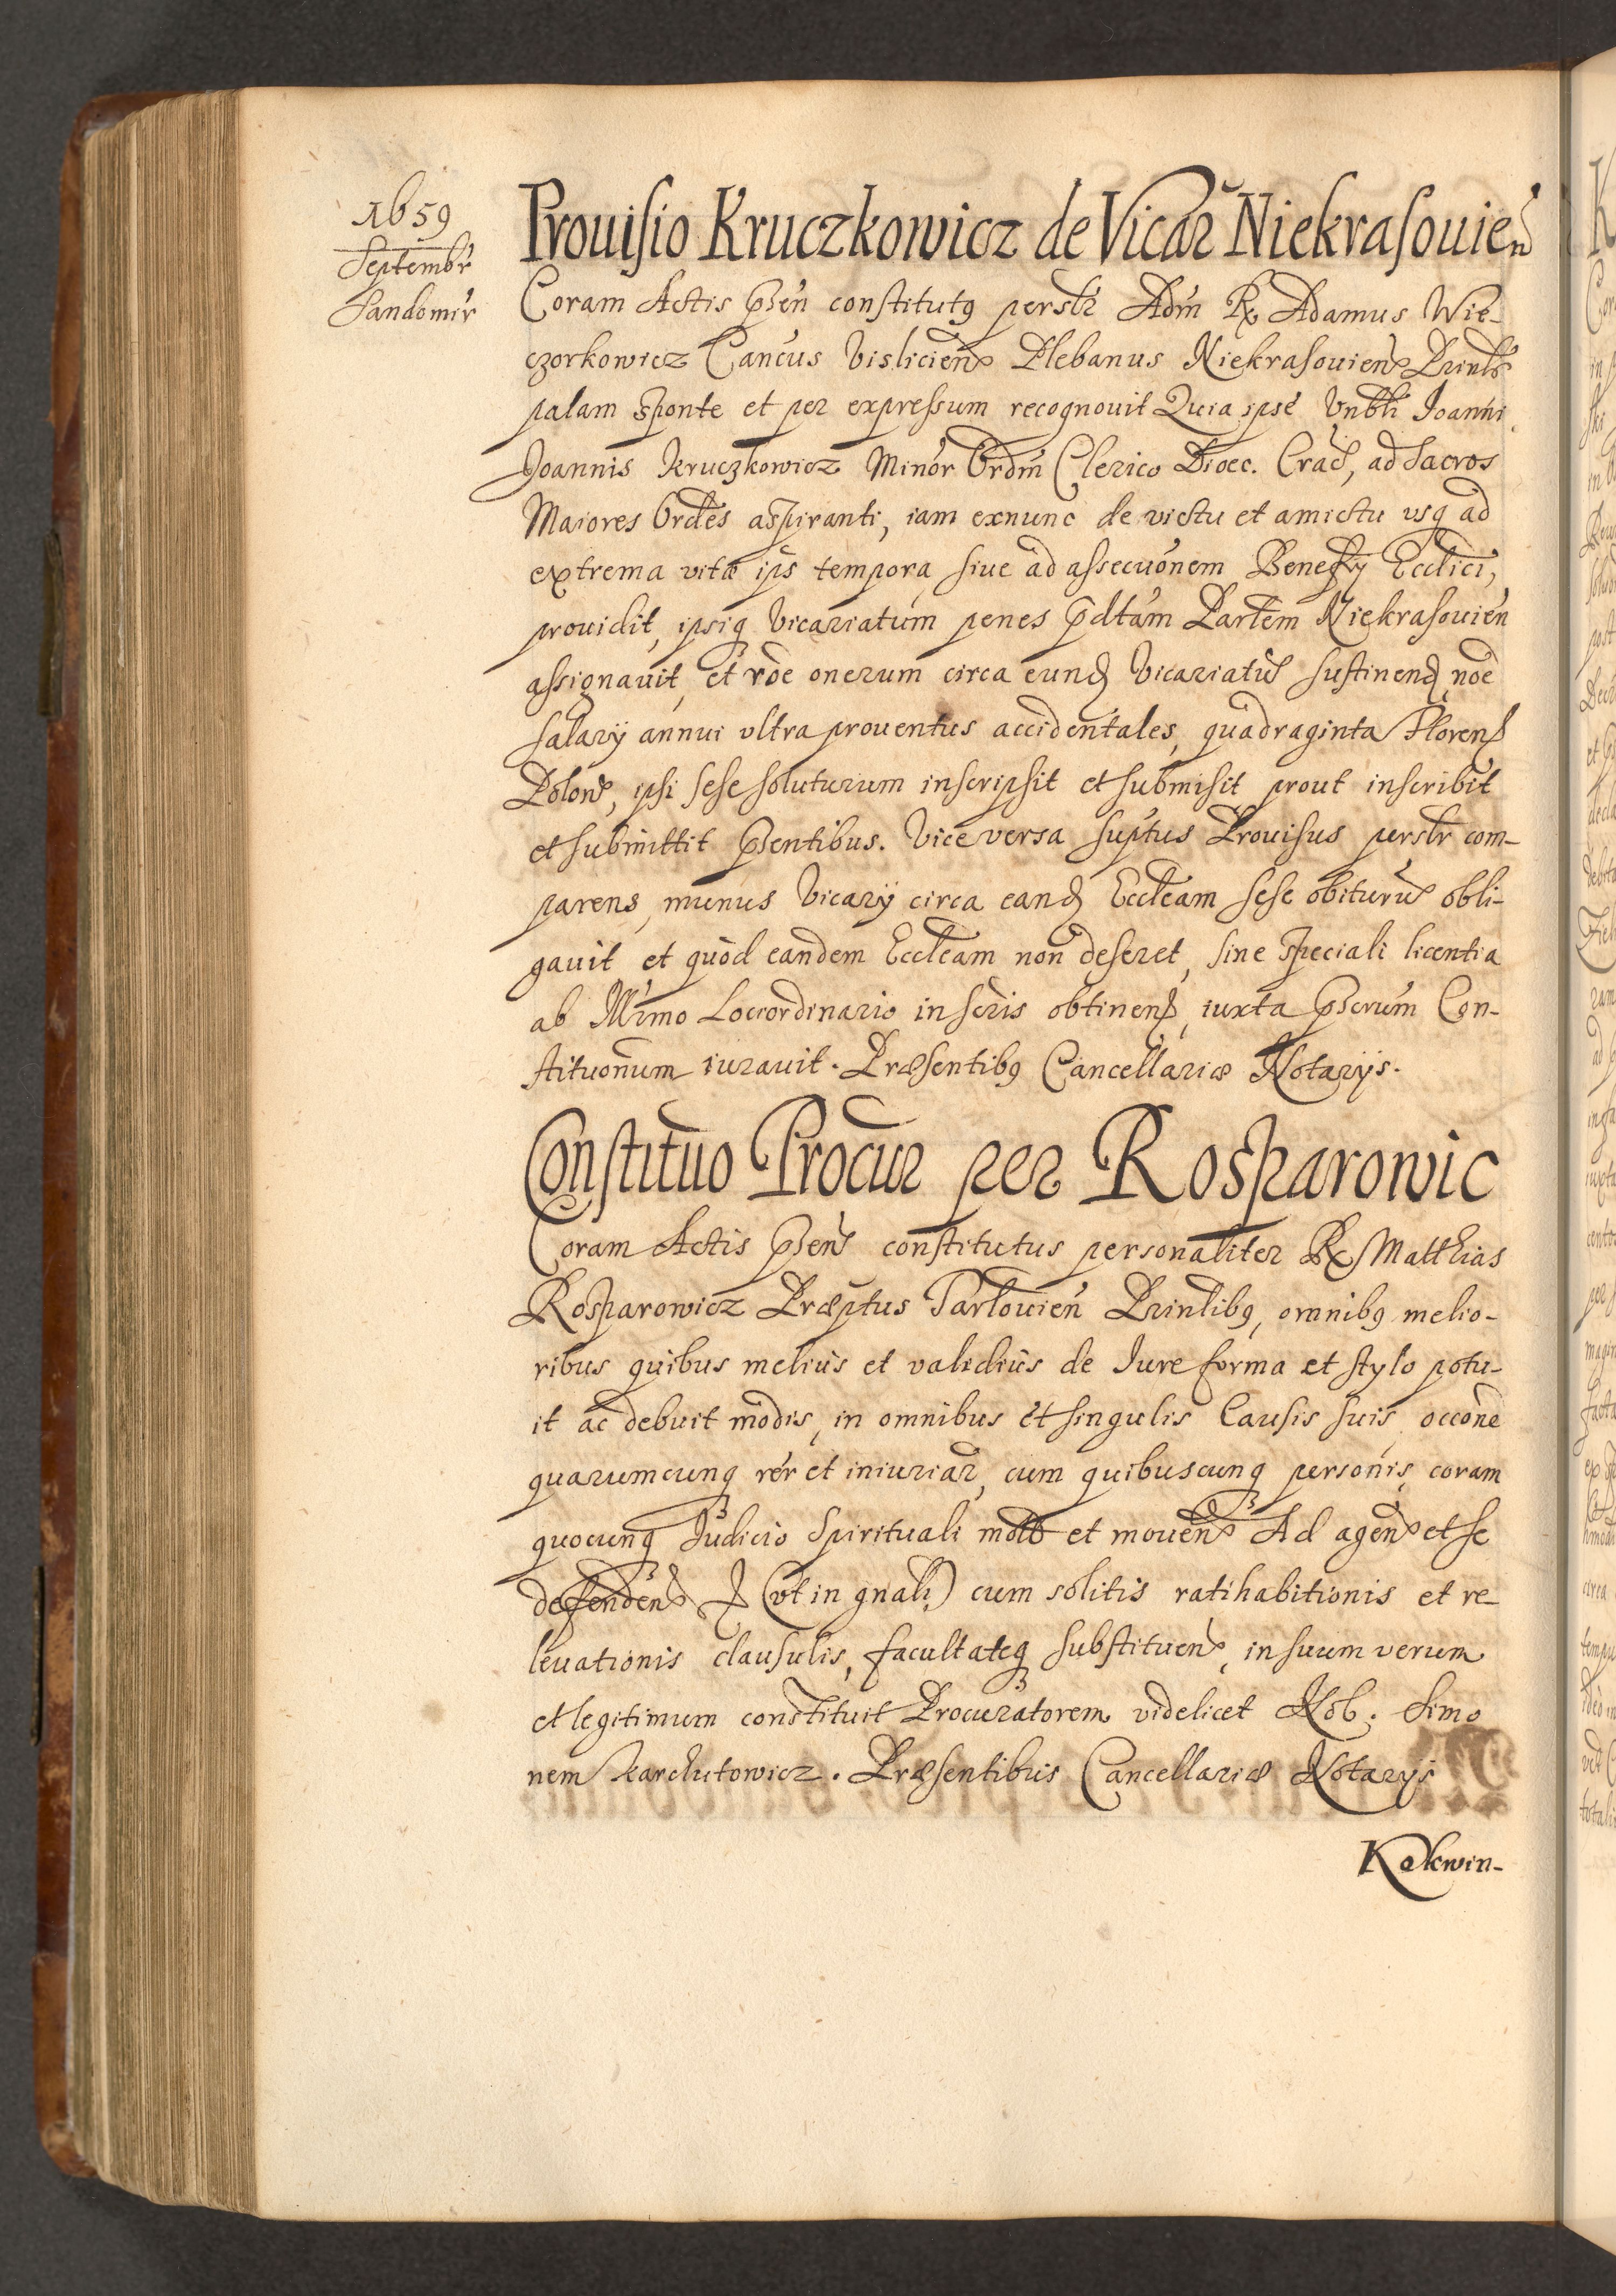 1659
Septembr
Sandomir
Prouisio Kruczkowicz de Vicar Niekrasouien
Coram Actis pñsen constitutq personlr Adm Rx Adamus Wie-
czorkowicz Cancus Visliciens Plebanus Niekrasouiens Prinlr
palam sponte et per expressum recognouit Quia ipse Vnbli Joanni
Joannis Kruczkowicz Minor Ordm Clerico Dioec. Crac, ad sacros
Maiores Ordes aspiranti, iam exnunc de victu et amictu vsq ad
extrema vitæ ips tempora siue ad assecuonem Beneficy Ecclici,
prouidit, ipsiq Vicariatum penes pdtam Partem Niekrasouien
assignauit, et roe onerum circa eund Vicariatu sustinend noe
salary annui vltra prouentus accidentales, quadraginta Floren
Polon, ipsi sese soluturum inscripsit et submisit prout inscribit
et submittit pñsentibus. Vice versa suptus Prouisus personlr com-
parens, munus Vicary circa eand Eccleam sese obituru obli-
gauit et quod eandem Eccleam non deseret, sine speciali licentia
ab Illmo Lociordinario in scris obtinend, iuxta pñscrum Con-
stituonum iurauit. Præsentibq Cancellariæ Notarijs.
Constituo Procur per Rosparowic
Coram Actis pñsen constitutus personaliter Rx Matthias
Rosparowicz Præptus Tarlouien Prinlibq, omnibq melio-
ribus quibus melius et validius de Iure forma et stylo potu-
it ac debuit modis, in omnibus et singulis Causis suis occone
quarumcunq rer et iniuriar, cum quibuscunq personis, coram
quocunq Judicio Spirituali motis et mouens Ad agens et se
defendens & (vt in gnali) cum solitis ratihabitionis et re-
leuationis clausulis, facultateq substituens, in suum verum
et legitimum constituit Procuratorem videlicet Nob. Simo
nem Karchutowicz. Præsentibus Cancellariæ Notarys
Kokwin-